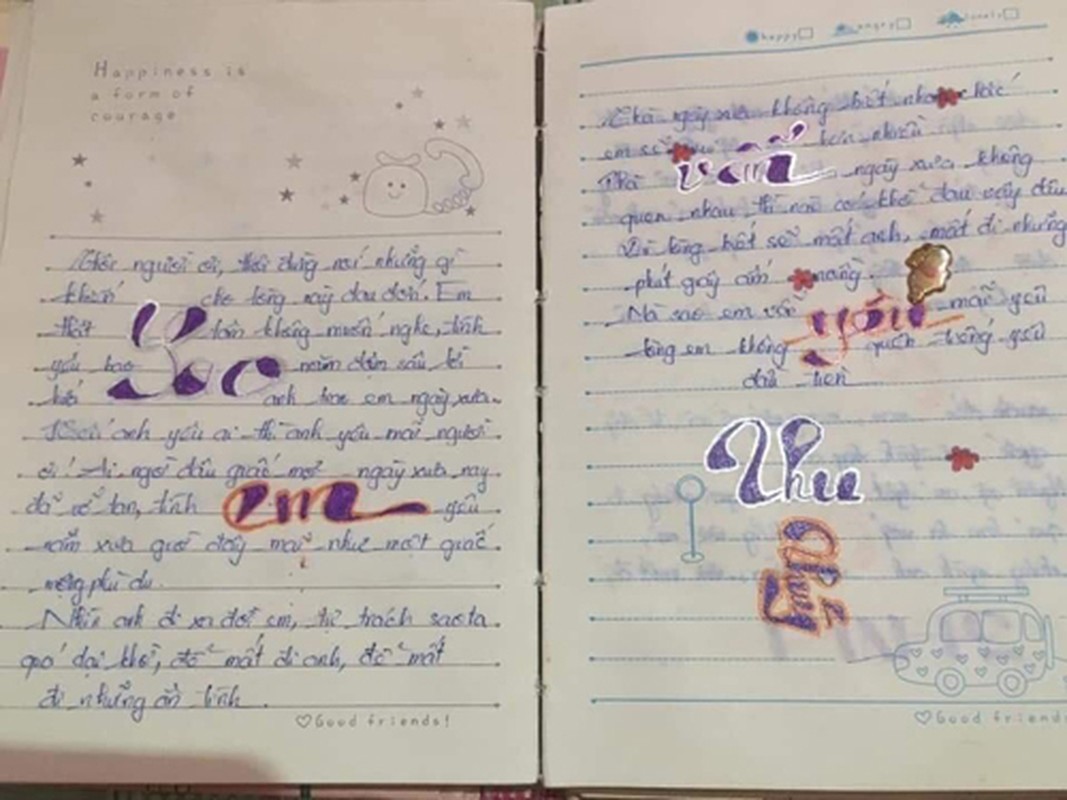 Happiness is
a form of
courage
Thôi người ơi, thôi đừng nói những gì
khiến cho lòng này đau đớn. Em
thật tâm không muốn nghe, tình
yêu bao năm đậm sâu lời
Sao
anh trao em ngày xưa.
anh yêu ai thì anh yêu mãi người
ơi! Ai ngờ đâu giấc mơ ngày xưa nay
đã vỡ tan, tình yêu
em
năm xưa giờ đây mãi như một giấc
mộng phù du.
Nhìn anh đi xa đời em, tự trách sao ta
quá dại khờ, để mất đi anh, để mất
đi những ân tình
Good friends!
happy angry lonely
Thà ngày xưa không biết nhau
em sẽ hơn nhiều
Thà ngày xưa không
vẫn
quen nhau thì nào có khổ đau vậy đâu
mất anh, mất đi những
phút giây ấm nồng.
Mà sao em vẫn mãi yêu
yêu
lòng em không quên tiếng yêu
đầu tiên
Thu
Thủy
Good friends